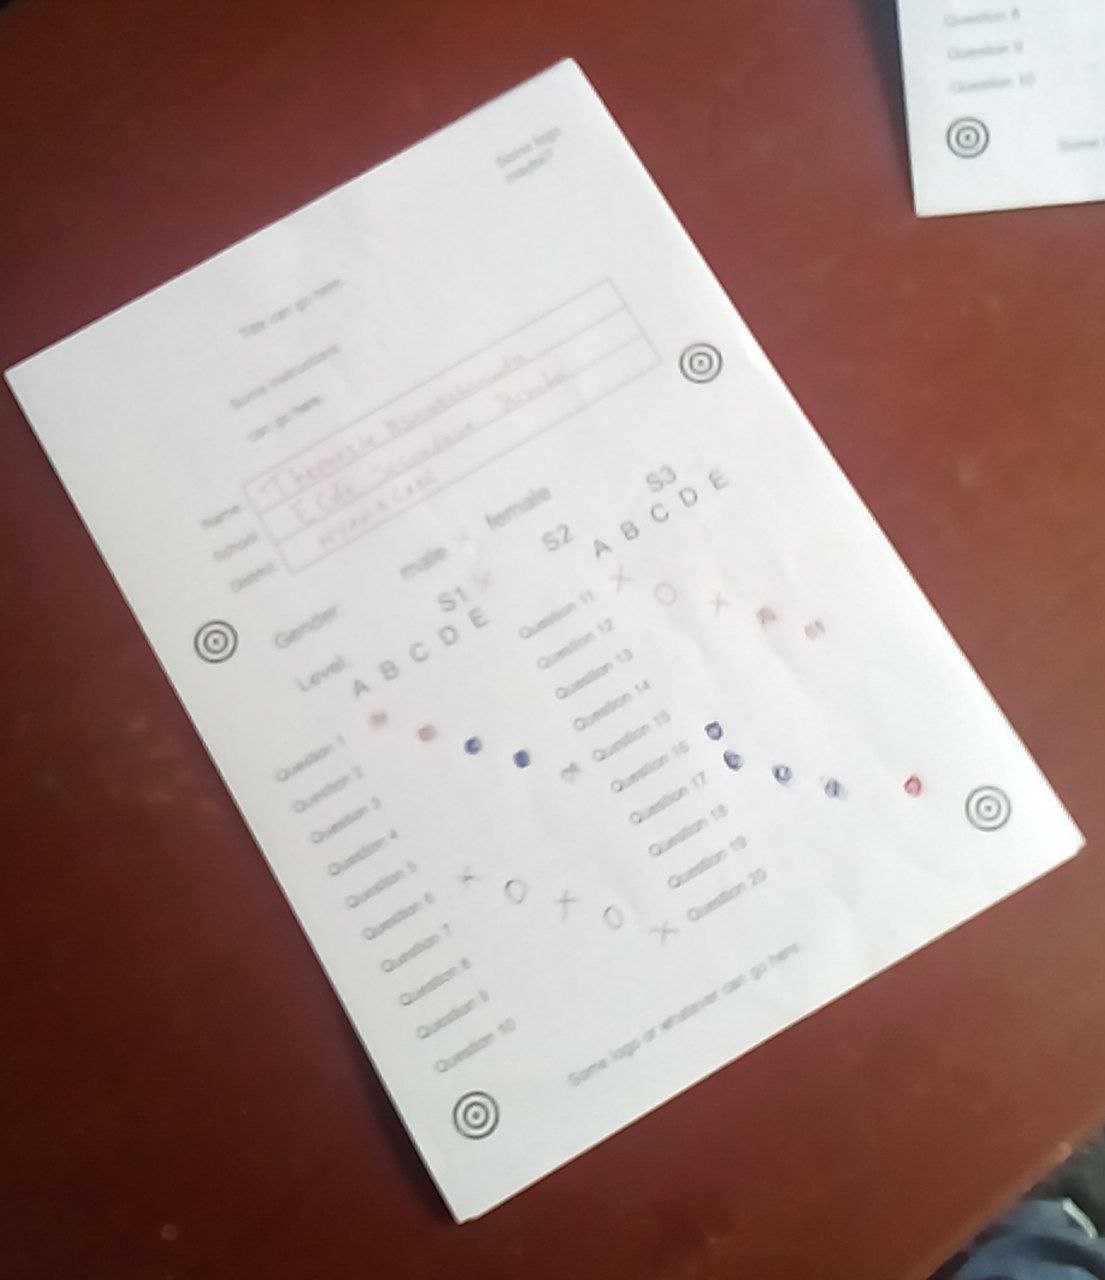 Some logo
maybe?
Title can go here.
Some instructions
can go here.
Name:
School: Ecole Secondaire
District:
Gender: male X female
Level: S1 X S2 S3
A B C D E
A B C D E
Question 1
Question 2
Question 3
Question 4
Question 5
Question 6 X
Question 7 O
Question 8 X
Question 9 O
Question 10 X
Question 11 X
Question 12 O
Question 13 X
Question 14
Question 15
Question 16
Question 17
Question 18
Question 19
Question 20
Some logo or whatever can go here.
Question 8
Question 9
Question 10
Some